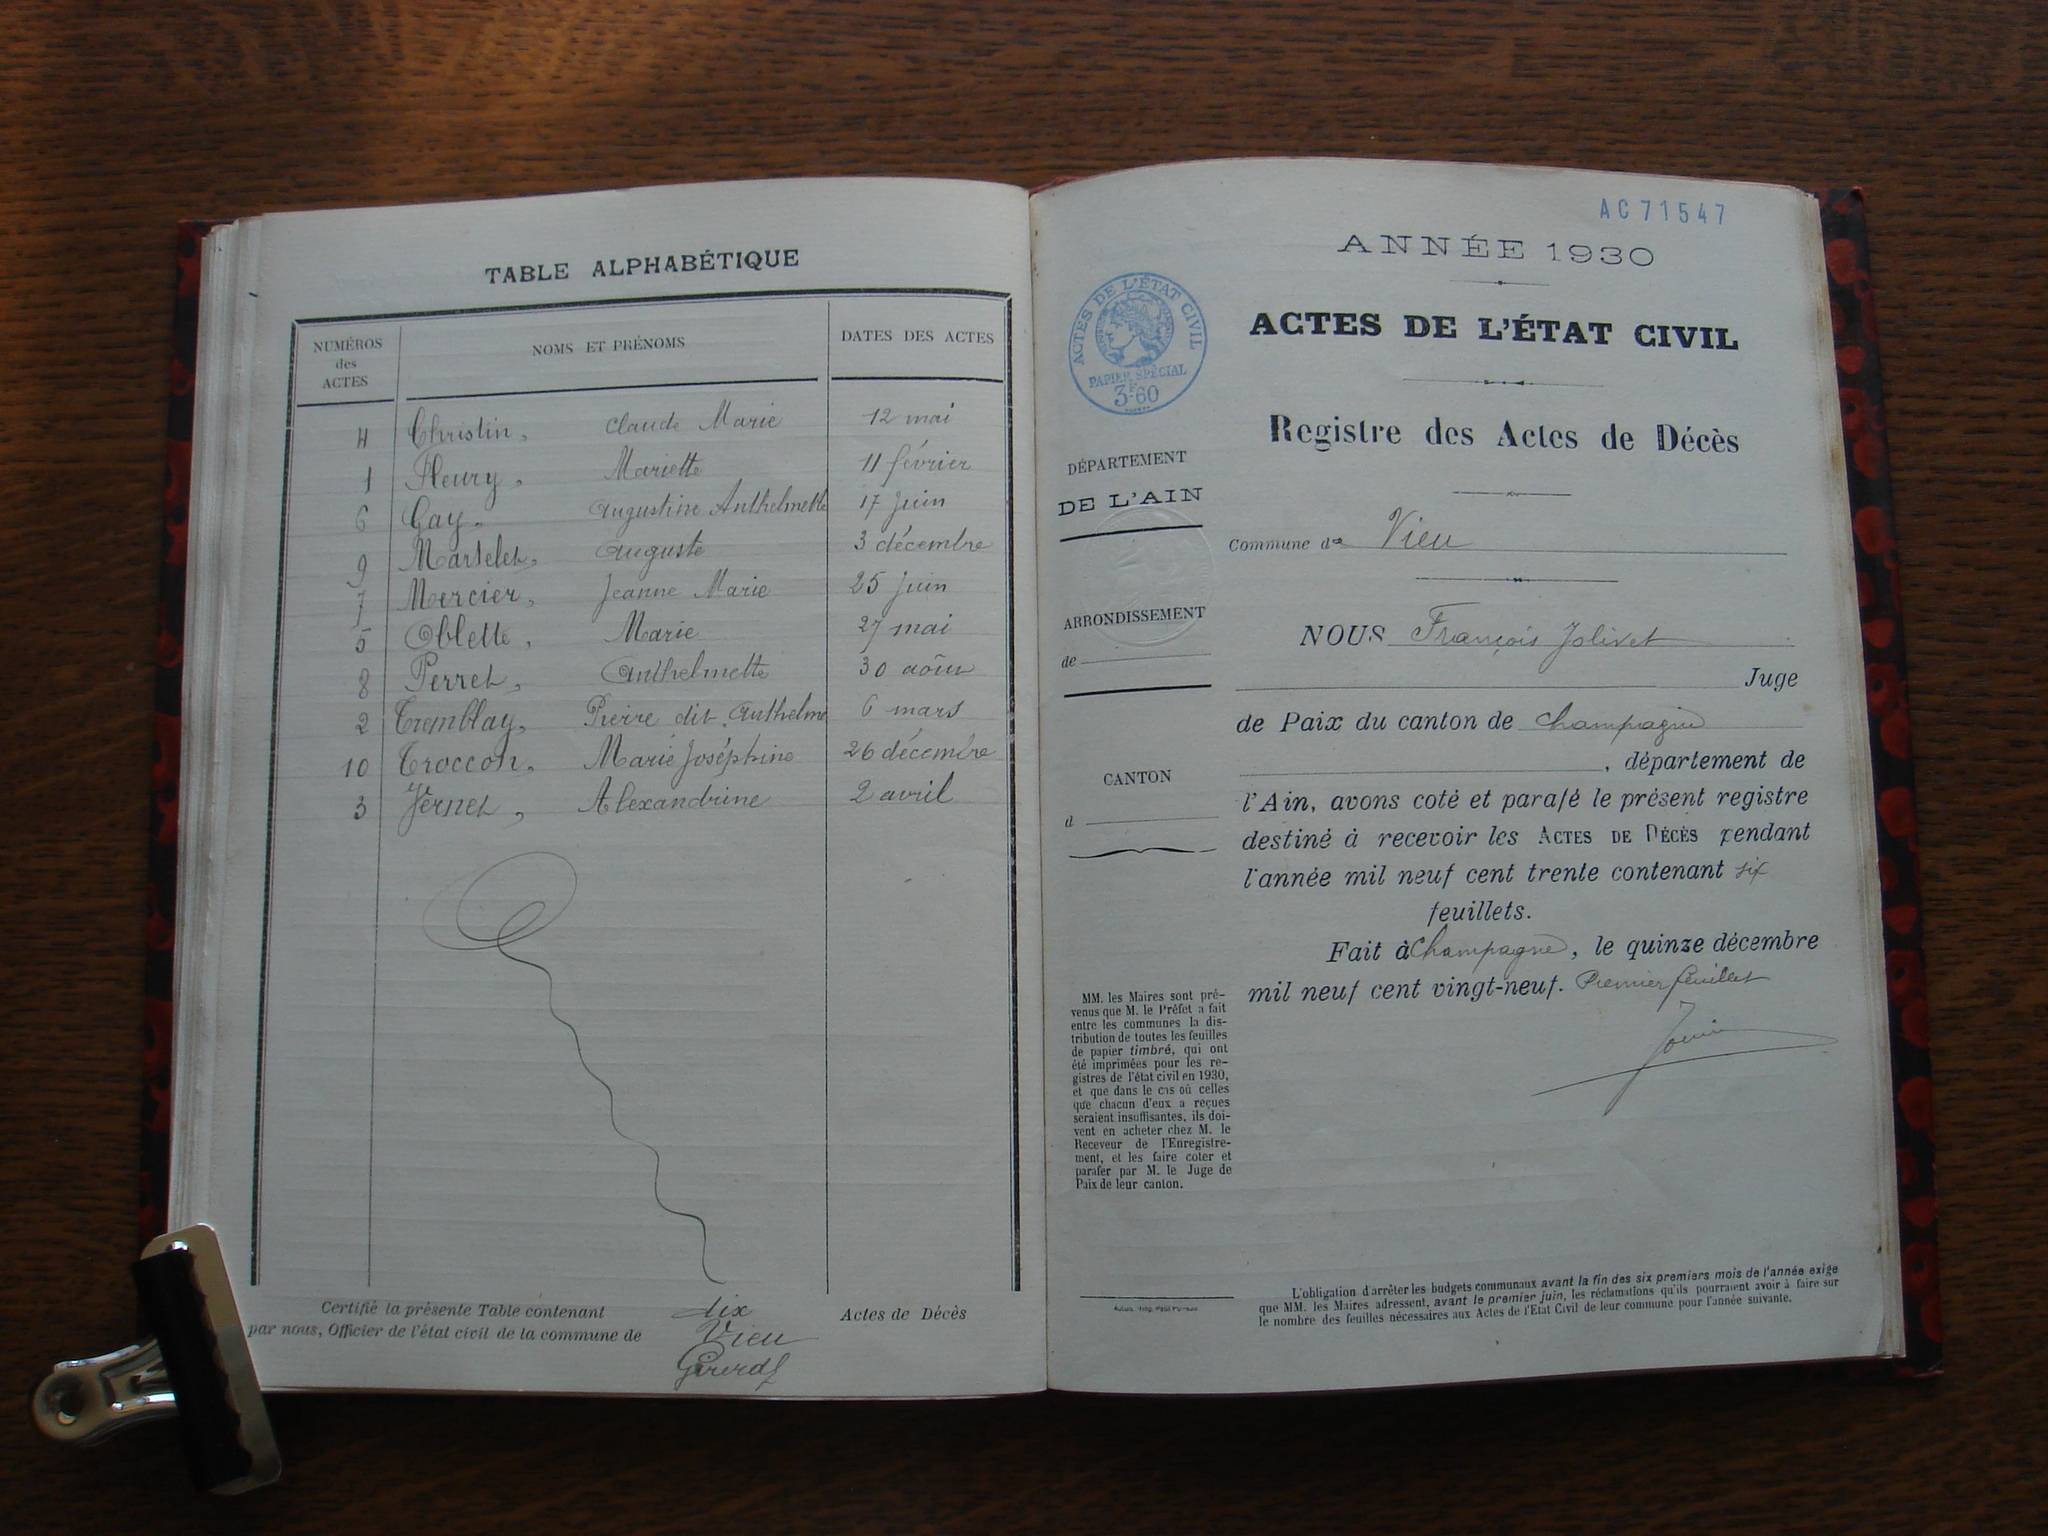 TABLE ALPHABÉTIQUE
NUMÉROS
des
ACTES
NOMS ET PRÉNOMS
DATES DES ACTES
4 Christin, Claude Marie 12 mai
1 Fleury, Mariette 11 février
6 Gay, Augustine Anthelmette 17 juin
9 Martelet, Auguste 3 décembre
7 Mercier, Jeanne Marie 25 juin
5 Oblette, Marie 27 mai
8 Perret, Anthelmette 30 août
2 Tremblay, Pierre dit Anthelme 6 mars
10 Troccon, Marie Joséphine 26 décembre
3 Vernet, Alexandrine 2 avril
Certifié la présente Table contenant dix Actes de Décès
par nous, Officier de l'état civil de la commune de Vieu
AC 71547
ANNÉE 1930
ACTES DE L'ÉTAT CIVIL
Registre des Actes de Décès
ACTES DE L'ÉTAT CIVIL
PAPIER SPÉCIAL
3F60
DÉPARTEMENT
DE L'AIN
ARRONDISSEMENT
de
CANTON
d
Commune de Vieu
NOUS François Jolivet
Juge
de Paix du canton de Champagne
, département de
l'Ain, avons coté et parafé le présent registre
destiné à recevoir les ACTES DE DÉCÈS pendant
l'année mil neuf cent trente contenant six
feuillets.
Fait à Champagne, le quinze décembre
mil neuf cent vingt-neuf. Premier feuillet
MM. les Maires sont pré-
venus que M. le Préfet a fait
entre les communes la dis-
tribution de toutes les feuilles
de papier timbré, qui ont
été imprimées pour les re-
gistres de l'état civil en 1930,
et que dans le cas où celles
que chacun d'eux a reçues
seraient insuffisantes, ils doi-
vent en acheter chez M. le
Receveur de l'Enregistre-
ment, et les faire coter et
parafer par M. le Juge de
Paix de leur canton.
L'obligation d'arrêter les budgets communaux avant la fin des six premiers mois de l'année exige
que MM. les Maires adressent, avant le premier juin, les réclamations qu'ils pourraient avoir à faire sur
le nombre des feuilles nécessaires aux Actes de l'État Civil de leur commune pour l'année suivante.